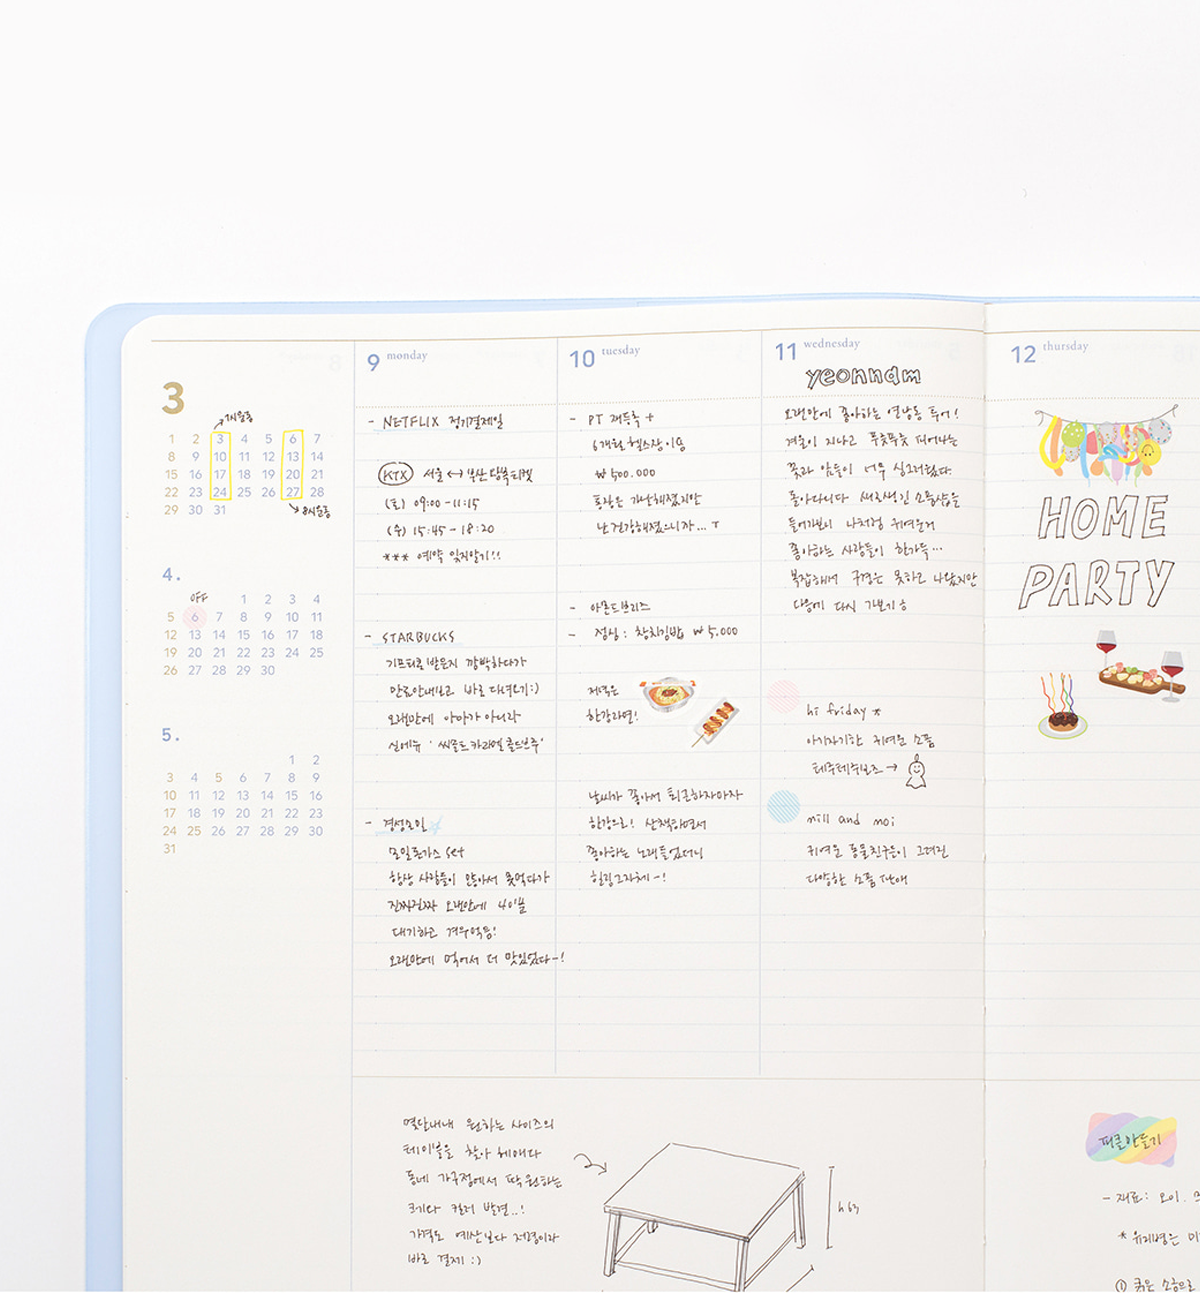 3
1 2 3 4 5 6 7
8 9 10 11 12 13 14
15 16 17 18 19 20 21
22 23 24 25 26 27 28
29 30 31
7시운동
8시운동
4.
OFF
1 2 3 4
5 6 7 8 9 10 11
12 13 14 15 16 17 18
19 20 21 22 23 24 25
26 27 28 29 30
5.
1 2
3 4 5 6 7 8 9
10 11 12 13 14 15 16
17 18 19 20 21 22 23
24 25 26 27 28 29 30
31
9 monday
- NETFLIX 정기결제일
KTX 서울 ↔ 부산 왕복티켓
(토) 09:00 - 11:15
(수) 15:45 - 18:20
*** 예약 잊지말기!!
- STARBUCKS
기프티콘 받은지 깜박하다가
만료안내보고 바로 다녀오기:)
오랜만에 아아가 아니라
신메뉴 '씨솔트 카라멜 콜드브루'
- 경성모일
모밀돈가스 set
항상 사람들이 많아서 못먹다가
진짜진짜 오랜만에 40분
대기하고 겨우먹음!
오랜만에 먹어서 더 맛있었다-!
10 tuesday
- PT 재등록 +
6개월 헬스장 이용
₩500.000
통장은 가난해졌지만
난 건강해졌으니까... T
- 아몬드브리즈
- 점심 : 참치김밥 ₩5.000
저녁은
한강라면!
날씨가 좋아서 퇴근하자마자
한강으로! 산책하면서
좋아하는 노래들었더니
힐링그자체-!
11 wednesday
yeonnam
오랜만에 좋아하는 연남동 투어!
겨울이 지나고 푸릇푸릇 피어나는
꽃과 잎들이 너무 싱그러웠다
돌아다니다 새로생긴 소품샵을
들어가보니 나처럼 귀여운거
좋아하는 사람들이 한가득...
복잡해서 구경은 못하고 나왔지만
다음에 다시 가보기
hi friday *
아기자기한 귀여운 소품
테루테루보즈 →
mill and moi
귀여운 동물친구들이 그려진
다양한 소품 판매
12 thursday
HOME
PARTY
몇달내내 원하는 사이즈의
테이블을 찾아 헤매다
동네 가구점에서 딱 원하는
크기와 컬러 발견..!
가격도 예산보다 저렴이라
바로 결제 :)
피클만들기
- 재료: 오이.
* 유리병은
①